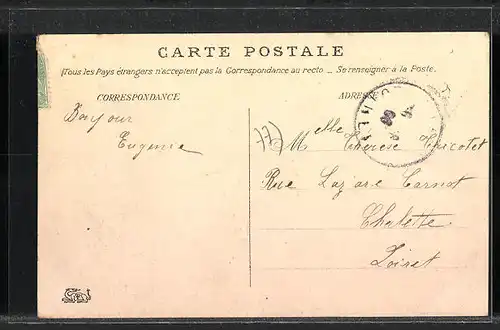 CARTE POSTALE
(Tous les Pays étrangers n'acceptent pas la Correspondance au recto _ Se renseigner à la Poste.
CORRESPONDANCE
ADRESSE
Bonjour
Eugenie
(77)
Melle Therese Chicotet
Rue Lazare Carnot
Chalette
Loiret